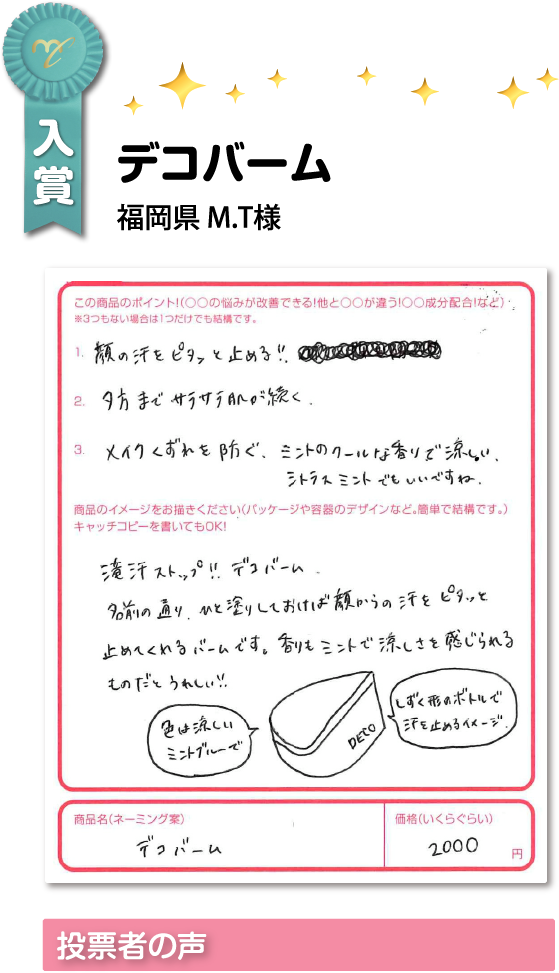 入賞
デコバーム
福岡県 M.T様
この商品のポイント!(〇〇の悩みが改善できる!他と〇〇が違う!〇〇成分配合!など)
※3つもない場合は1つだけでも結構です。
1. 顔の汗をピタッと止める!!
2. 夕方までサラサラ肌が続く.
3. メイクくずれを防ぐ、ミントのクールな香りで涼しい、
シトラスミントでもいいですね.
商品のイメージをお描きください(パッケージや容器のデザインなど。簡単で結構です。)
キャッチコピーを書いてもOK!
滝汗ストップ!! デコバーム.
名前の通り、ひと塗りしておけば顔からの汗をピタッと
止めてくれるバームです。香りもミントで涼しさを感じられる
ものだとうれしい!!
色は涼しい
ミントブルーで
DECO
しずく形のボトルで
汗を止めるイメージ.
商品名(ネーミング案)
デコバーム
価格(いくらぐらい)
2000 円
投票者の声